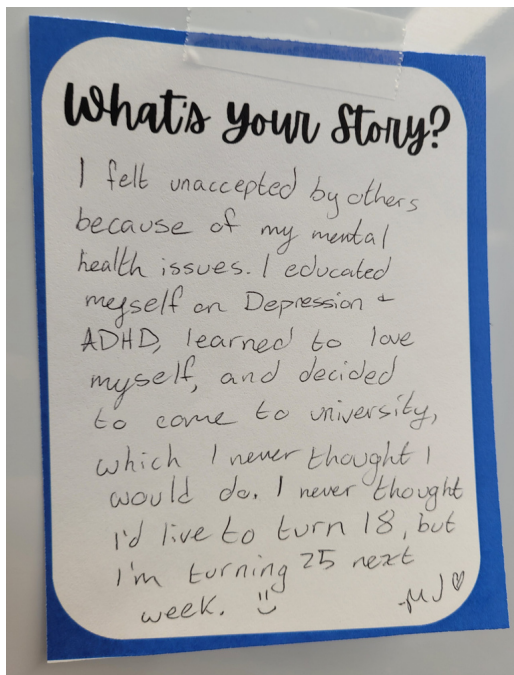 What's Your Story?
I felt unaccepted by others
because of my mental
health issues. I educated
myself on Depression +
ADHD, learned to love
myself, and decided
to come to university,
which I never thought I
would do. I never thought
I'd live to turn 18, but
I'm turning 25 next
week. :)
-MJ ♡